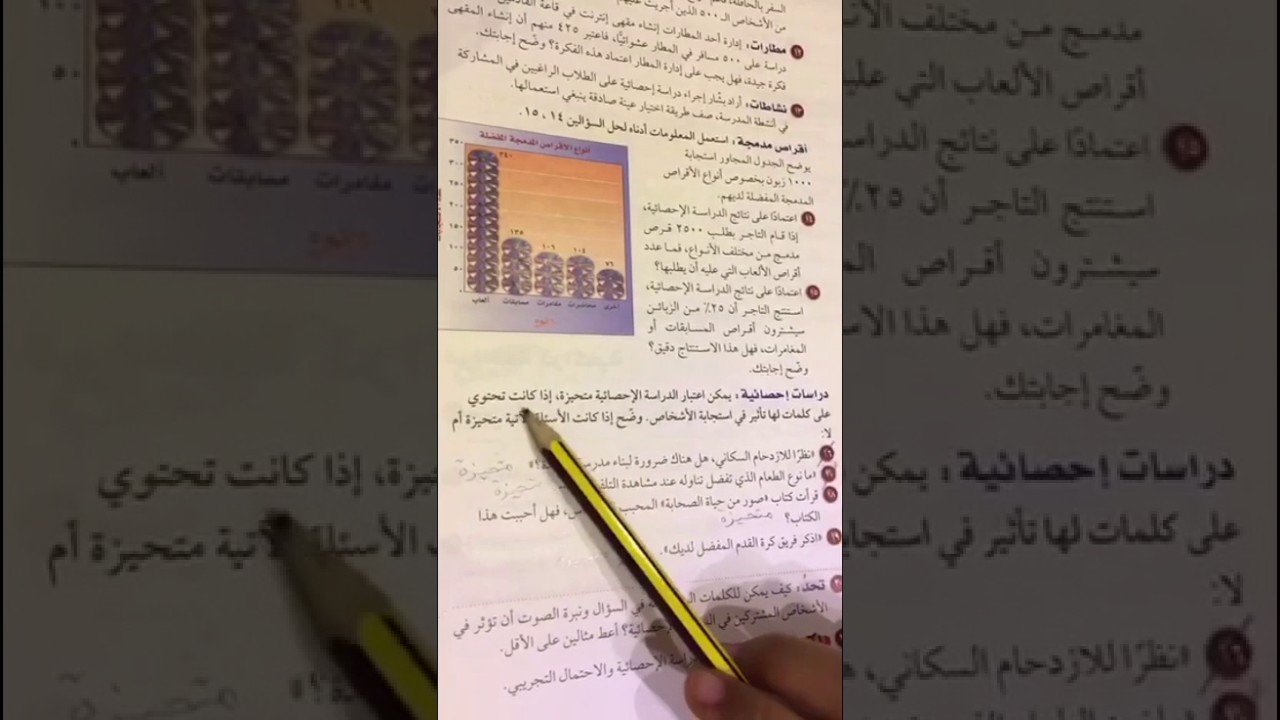 السفر بالحافلة،
من الأشخاص الـ ٥٠٠ الذين أجريت عليهم
١٢ مطارات: إدارة أحد المطارات إنشاء مقهى إنترنت في قاعة
دراسة على ٥٠٠ مسافر في المطار عشوائيًا، فاعتبر ٤٢٥ منهم أن إنشاء المقهى
فكرة جيدة، فهل يجب على إدارة المطار اعتماد هذه الفكرة؟ وضّح إجابتك.
١٣ نشاطات: أراد بشار إجراء دراسة إحصائية على الطلاب الراغبين في المشاركة
في أنشطة المدرسة، صف طريقة اختيار عينة صادقة ينبغي استعمالها.
أقراص مدمجة: استعمل المعلومات أدناه لحل السؤالين ١٤ ، ١٥ .
يوضح الجدول المجاور استجابة
١٠٠٠ زبون بخصوص أنواع الأقراص
المدمجة المفضلة لديهم.
١٤ اعتمادًا على نتائج الدراسة الإحصائية،
إذا قام التاجر بطلب ٢٥٠٠ قرص
مدمج من مختلف الأنواع، فما عدد
أقراص الألعاب التي عليه أن يطلبها؟
١٥ اعتمادًا على نتائج الدراسة الإحصائية،
استنتج التاجر أن ٢٥٪ من الزبائن
سيشترون أقراص المسابقات أو
المغامرات، فهل هذا الاستنتاج دقيق؟
وضّح إجابتك.
أنواع الأقراص المدمجة المفضلة
٣٥٠
٣٠٠
٢٥٠
٢٠٠
١٥٠
١٠٠
٥٠
١٣٥
١٠٦
١٠٤
٧٦
ألعاب
مسابقات
مغامرات
محاضرات
أخرى
النوع
دراسات إحصائية: يمكن اعتبار الدراسة الإحصائية متحيزة، إذا كانت تحتوي
على كلمات لها تأثير في استجابة الأشخاص. وضّح إذا كانت الأسئلة الآتية متحيزة أم
لا:
١٦ «نظرًا للازدحام السكاني، هل هناك ضرورة لبناء مدرسة
متحيزة
«ما نوع الطعام الذي تفضل تناوله عند مشاهدة
متحيزة
١٨ قرأت كتاب «صور من حياة الصحابة» المحبب
فهل أحببت هذا
الكتاب؟
متحيزة
١٩ «اذكر فريق كرة القدم المفضل لديك».
تحدٍّ: كيف يمكن للكلمات
في السؤال ونبرة الصوت أن تؤثر في
الأشخاص المشتركين في
الإحصائية؟ أعط مثالين على الأقل.
الإحصائية والاحتمال التجريبي.